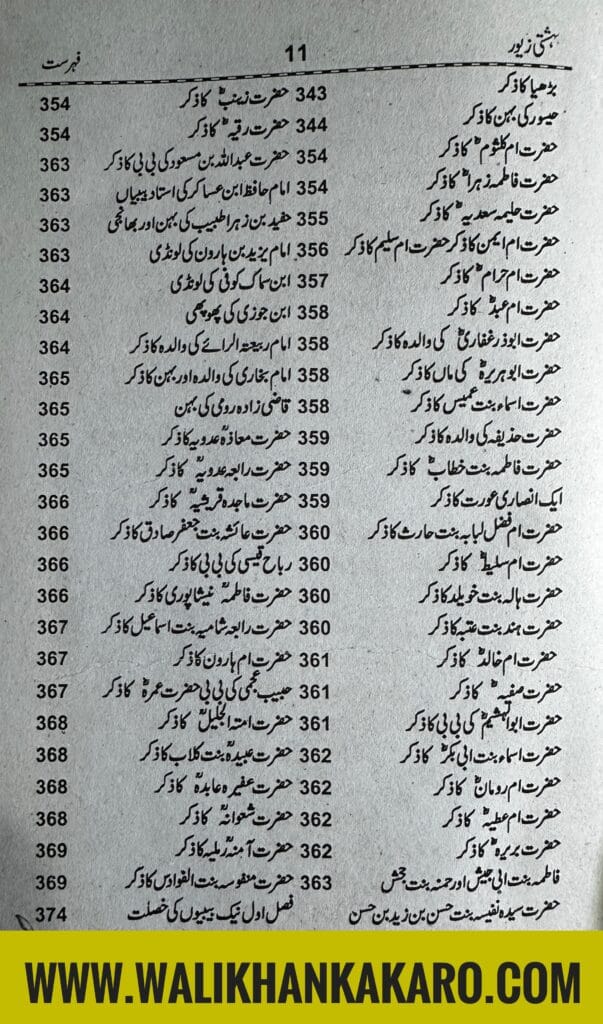 بہشتی زیور
11
فہرست
بڑھیا کا ذکر 343
جیسور کی بہن کا ذکر 344
حضرت ام کلثومؓ کا ذکر 354
حضرت فاطمہ زہراؓ کا ذکر 354
حضرت حلیمہ سعدیہؓ کا ذکر 355
حضرت ام ایمن کا ذکر حضرت ام سلیم کا ذکر 356
حضرت ام حرامؓ کا ذکر 357
حضرت ام عبدؓ کا ذکر 358
حضرت ابوذر غفاریؓ کی والدہ کا ذکر 358
حضرت ابو ہریرہؓ کی ماں کا ذکر 358
حضرت اسماء بنت عمیس کا ذکر 358
حضرت حذیفہ کی والدہ کا ذکر 359
حضرت فاطمہ بنت خطابؓ کا ذکر 359
ایک انصاری عورت کا ذکر 359
حضرت ام فضل لبابہ بنت حارث کا ذکر 360
حضرت ام سلیطؓ کا ذکر 360
حضرت ہالہ بنت خویلد کا ذکر 360
حضرت ہند بنت عتبہ کا ذکر 360
حضرت ام خالدؓ کا ذکر 361
حضرت صفیہؓ کا ذکر 361
حضرت ابوالہیثمؓ کی بی بی کا ذکر 361
حضرت اسماء بنت ابی بکرؓ کا ذکر 362
حضرت ام رومانؓ کا ذکر 362
حضرت ام عطیہؓ کا ذکر 362
حضرت بریرہؓ کا ذکر 362
فاطمہ بنت ابی جیش اور حمنہ بنت جحش 363
حضرت سیدہ نفیسہ بنت حسن بن زید بن حسن
حضرت زینبؓ کا ذکر 354
حضرت رقیہؓ کا ذکر 354
حضرت عبداللہ بن مسعود کی بی بی کا ذکر 363
امام حافظ ابن عساکر کی استاد بیبیاں 363
حفید بن زہرا طبیب کی بہن اور بھانجی 363
امام یزید بن ہارون کی لونڈی 363
ابن سماک کوفی کی لونڈی 364
ابن جوزی کی پھوپھی 364
امام ربیعۃ الرائے کی والدہ کا ذکر 364
امام بخاری کی والدہ اور بہن کا ذکر 365
قاضی زادہ رومی کی بہن 365
حضرت معاذہ عدویہ کا ذکر 365
حضرت رابعہ عدویہؒ کا ذکر 365
حضرت ماجدہ قرشیہؒ کا ذکر 366
حضرت عائشہ بنت جعفر صادق کا ذکر 366
رباح قیسی کی بی بی کا ذکر 366
حضرت فاطمہؒ نیشاپوری کا ذکر 366
حضرت رابعہ شامیہ بنت اسماعیل کا ذکر 367
حضرت ام ہارون کا ذکر 367
حبیب عجمی کی بی بی حضرت عمرہؒ کا ذکر 367
حضرت امتہ الجلیلؒ کا ذکر 368
حضرت عبیدہؒ بنت کلاب کا ذکر 368
حضرت عفیرہ عابدہؒ کا ذکر 368
حضرت شعوانہؒ کا ذکر 368
حضرت آمنہؒ رملیہ کا ذکر 369
حضرت منفوسہ بنت الفوارس کا ذکر 369
فصل اول نیک بیبیوں کی خصلت 374
WWW.WALIKHANKAKARO.COM